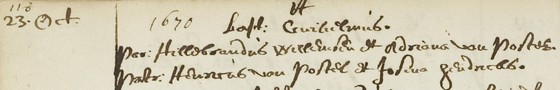 23. Oct. 1670 bapt: Guilielmus.
Par: Hillebrandus Willemsen et Adriana van Postel.
Patr: Henricus van Postel et Josina Hendricks.